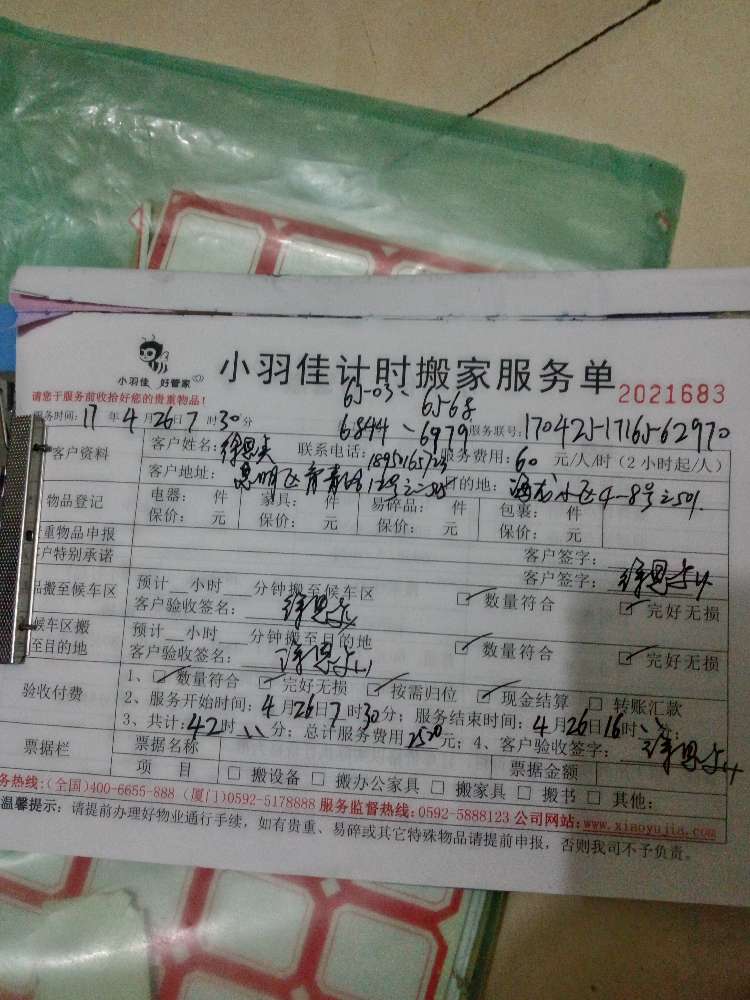 小羽佳 好管家
小羽佳计时搬家服务单
2021683
请您于服务前收拾好您的贵重物品!
65-03、6568
6844、6979
服务时间: 17年4月26日7时30分
服务联号: 170425-17165-62970
客户资料
客户姓名: 联系电话: 服务费用: 60元/人/时(2小时起/人)
客户地址: 的地:
物品登记
电器: 件 家具: 件 易碎品: 件 包裹: 件
保价: 元 保价: 元 保价: 元 保价: 元
重物品申报
客户签字:
户特别承诺
客户签字:
品搬至候车区
预计__小时__分钟搬至候车区
客户验收签名: ☑ 数量符合 ☑ 完好无损
候车区搬
至目的地
预计__小时__分钟搬至目的地
客户验收签名: ☑ 数量符合 ☑ 完好无损
验收付费
1、☑ 数量符合 ☑ 完好无损 ☑ 按需归位 ☑ 现金结算 □ 转账汇款
2、服务开始时间: 4月26日7时30分; 服务结束时间: 4月26日16时
3、共计: 42时 分; 总计服务费用2520元; 4、客户验收签字:
票据栏
票据名称 票据金额
项 目 □ 搬设备 □ 搬办公家具 □ 搬家具 □ 搬书 □ 其他:
务热线:(全国)400-6655-888 (厦门)0592-5178888 服务监督热线:0592-5888123 公司网站:www.xiaoyujia.com
温馨提示: 请提前办理好物业通行手续, 如有贵重、易碎或其它特殊物品请提前申报, 否则我司不予负责。